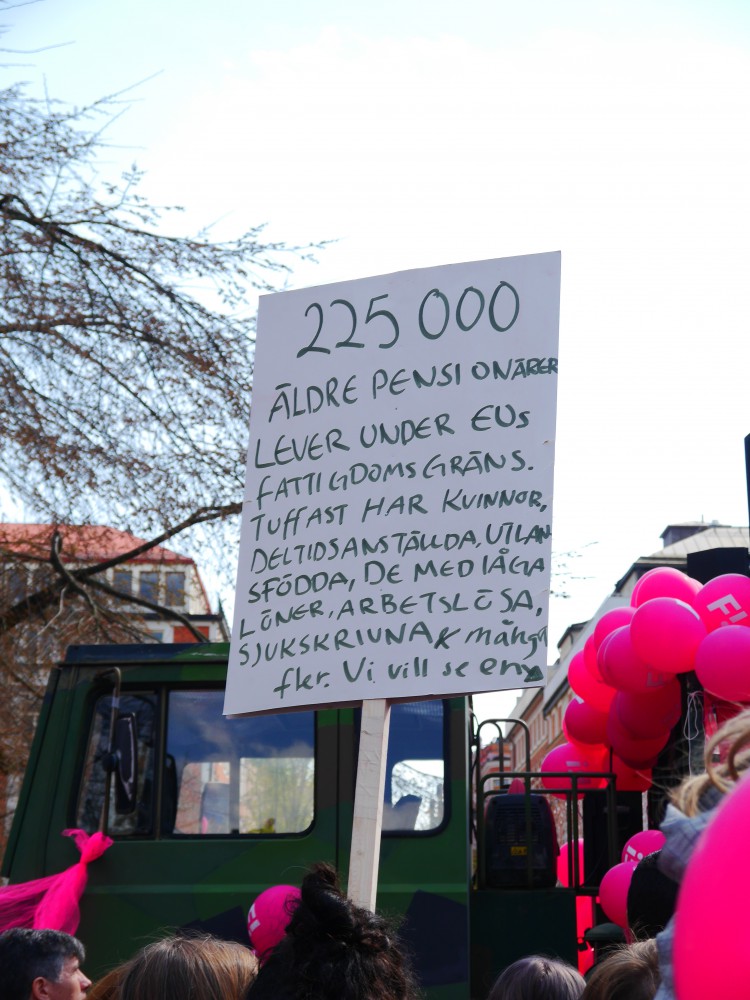 225 000
ÄLDRE PENSIONÄRER
LEVER UNDER EUs
FATTIGDOMSGRÄNS.
TUFFAST HAR KVINNOR,
DELTIDSANSTÄLLDA, UTLAN
SFÖDDA, DE MED LÅGA
LÖNER, ARBETSLÖSA,
SJUKSKRIVNA & många
fler. Vi vill se en
F!
F!
F!